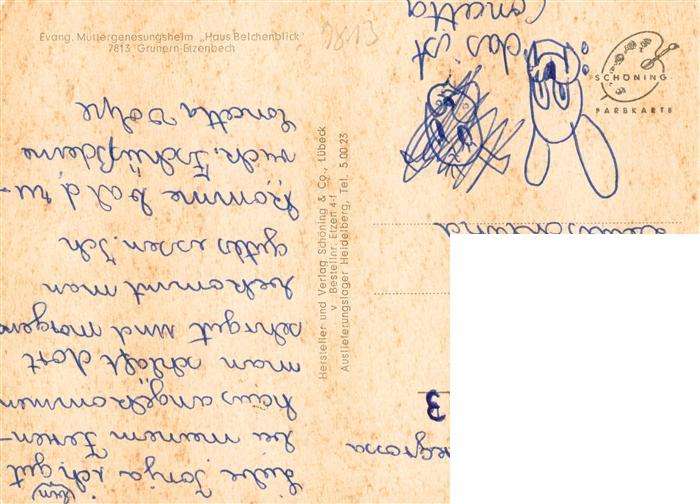 Evang. Müttergenesungsheim „Haus Belchenblick"
7813 Grunern-Etzenbach
7813
SCHÖNING
FARBKARTE
Hersteller und Verlag Schöning & Co., Lübeck
v Bestellnr. Etzen 4-f
Auslieferungslager Heidelberg, Tel. 5 00 23
Liebe ich bin gut
bei meinem Ferien-
haus angekommen
man schläft dort
sehr gut und morgens
bekommt man
gutes essen. Ich
komme bald zu-
rück.
Concetta
das ist
Concetta
3